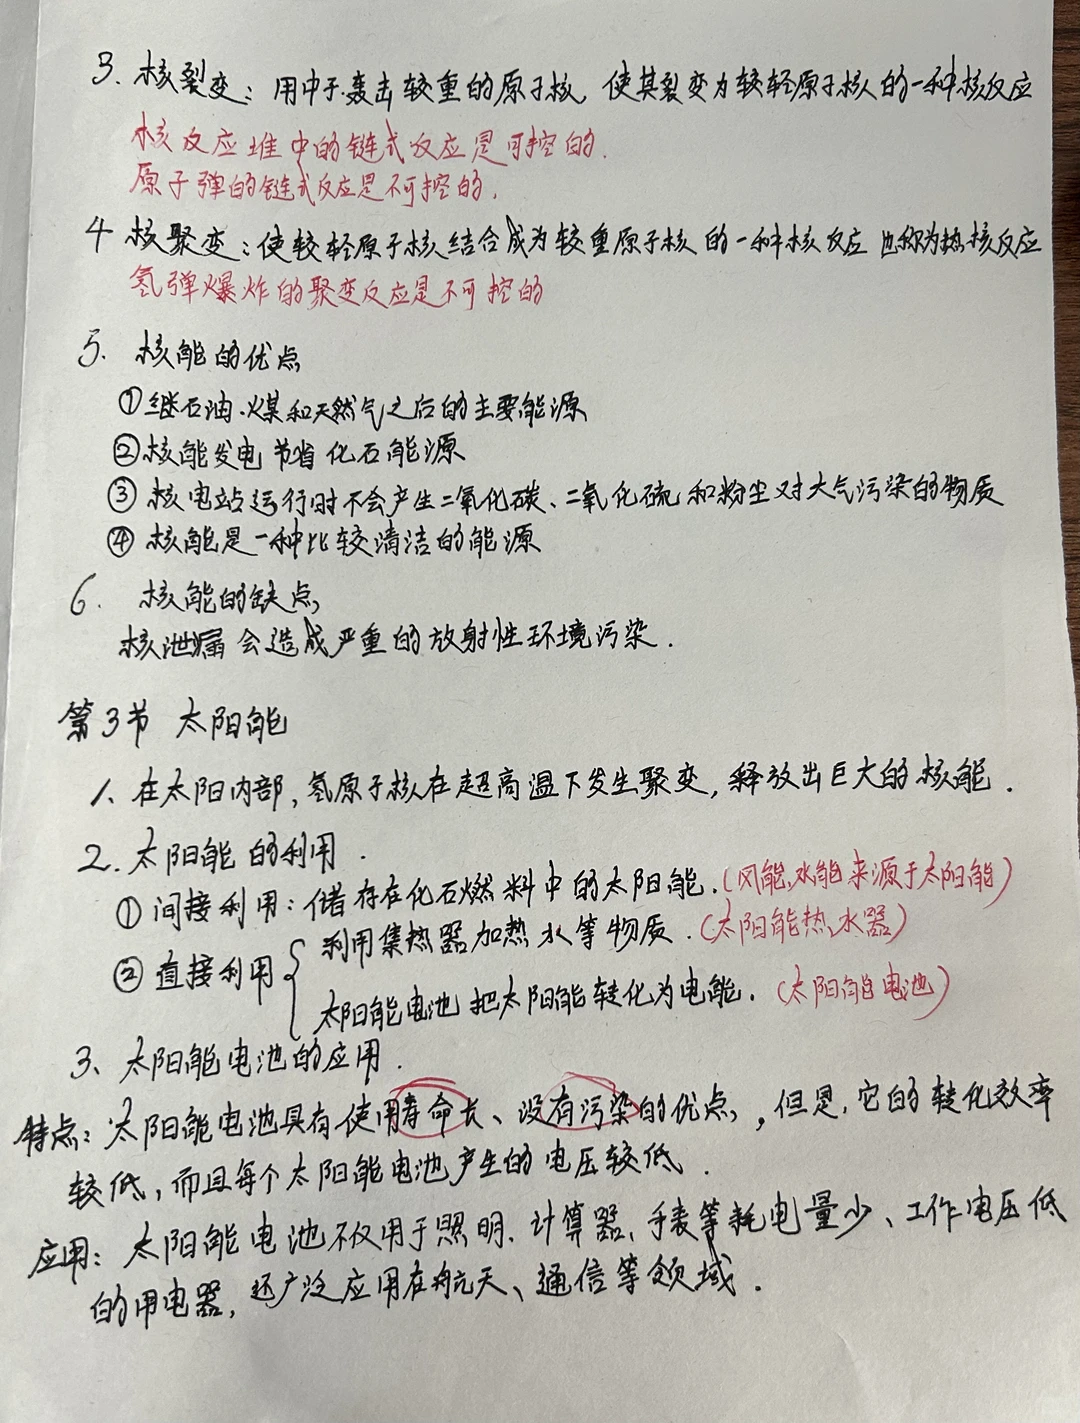 3. 核裂变：用中子轰击较重的原子核，使其裂变为较轻原子核的一种核反应
核反应堆中的链式反应是可控的.
原子弹的链式反应是不可控的.
4 核聚变：使较轻原子核结合成为较重原子核的一种核反应 也称为热核反应
氢弹爆炸的聚变反应是不可控的
5. 核能的优点
①继石油.煤和天然气之后的主要能源
②核能发电节省化石能源
③ 核电站运行时不会产生二氧化碳、二氧化硫和粉尘对大气污染的物质
④ 核能是一种比较清洁的能源
6. 核能的缺点
核泄漏会造成严重的放射性环境污染.
第3节 太阳能
1、在太阳内部，氢原子核在超高温下发生聚变，释放出巨大的核能.
2.太阳能的利用.
①间接利用：储存在化石燃料中的太阳能.(风能,水能来源于太阳能)
②直接利用{利用集热器加热水等物质.(太阳能热水器)
太阳能电池把太阳能转化为电能.(太阳能电池)
3、太阳能电池的应用.
特点：太阳能电池具有使用寿命长、没有污染的优点，但是,它的转化效率
较低，而且每个太阳能电池产生的电压较低.
应用：太阳能电池不仅用于照明.计算器,手表等耗电量少、工作电压低
的用电器，还广泛应用在航天、通信等领域.